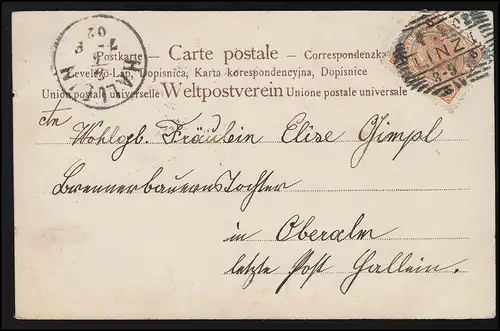 Postkarte — Carte postale — Correspondenzka
Levelező-Lap, Dopisnica, Karta korespondencyjna, Dopisnice
Union postale universelle Weltpostverein Unione postale universale
HALLEIN
02
LINZ
8-9
An
Wohlgb. Fräulein Elise Gimpl
Brennerbauernstochter
in Oberalm
letzte Post Hallein.